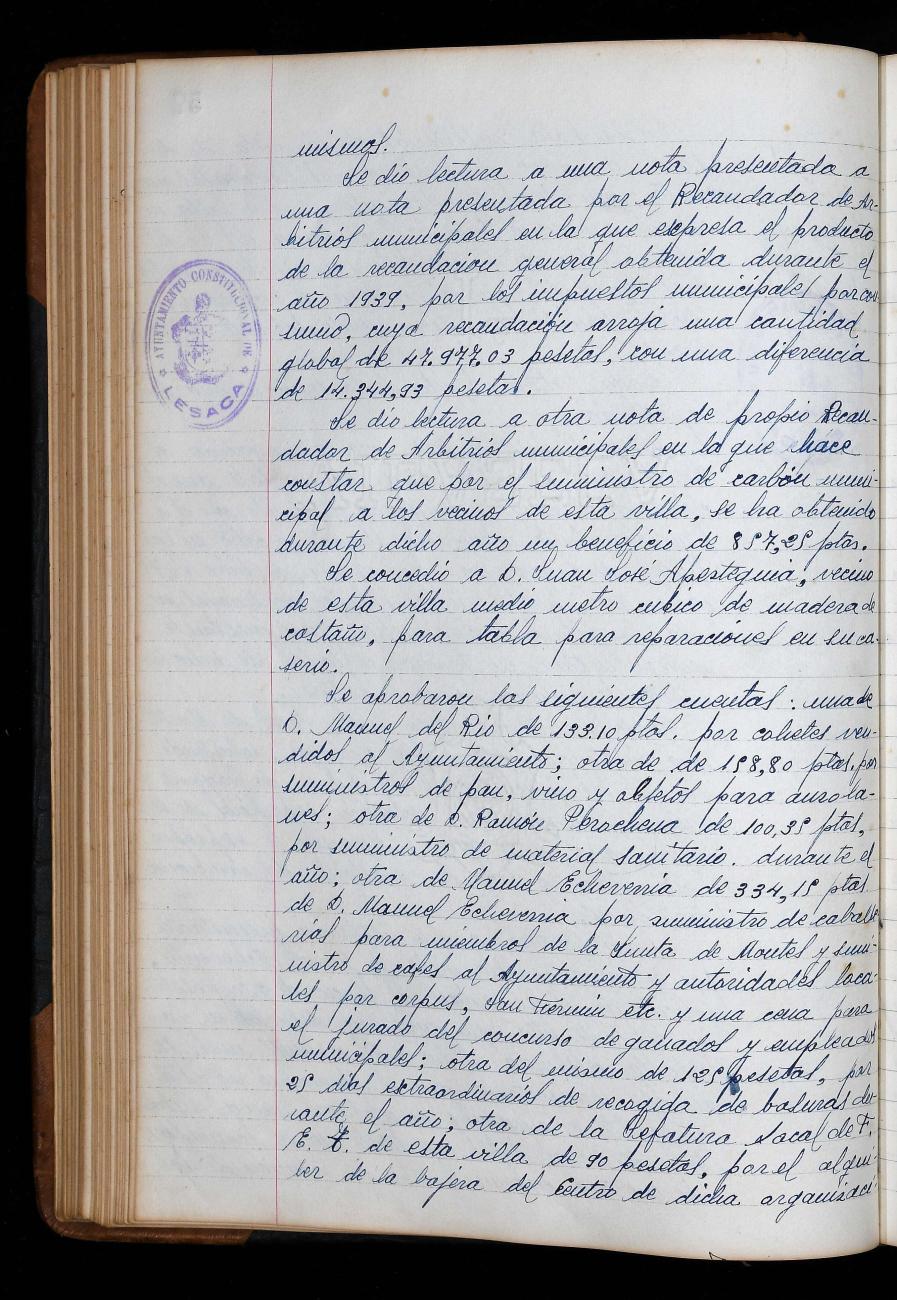 mismos.
Se dio lectura a una nota presentada a
una nota presentada por el Recaudador de Ar-
bitrios municipales en la que expresa el producto
de la recaudacion general obtenida durante el
año 1939, por los impuestos municipales por con
sumo, cuya recaudación arroja una cantidad
global de 47.977,03 pesetas, con una diferencia
de 14.344,93 pesetas.
Se dio lectura a otra nota de propio Recau-
dador de Arbitrios municipales en la que hace
constar que por el suministro de carbón muni-
cipal a los vecinos de esta villa, se ha obtenido
durante dicho año un beneficio de 857,25 ptas.
Se concedió a D. Juan José Apesteguia, vecino
de esta villa medio metro cubico de madera de
castaño, para tabla para reparaciones en su ca-
serio.
Se aprobaron las siguientes cuentas: una de
D. Manuel del Rio de 133,10 ptas. por cohetes ven-
didos al Ayuntamiento; otra de de 158,80 ptas. por
suministros de pan, vino y objetos para auzola-
nes; otra de D. Ramón Perochena de 100,35 ptas,
por suministro de material sanitario. durante el
año; otra de Manuel Echeverria de 334,15 ptas.
de D. Manuel Echeverria por suministro de caballe
rias para miembros de la Junta de Montes y sumi-
nistro de cafes al Ayuntamiento y autoridades loca-
les por corpus, San Fermin etc. y una cena para
el jurado del concurso de ganados y empleados
municipales; otra del mismo de 125 pesetas, por
25 dias extraordinarios de recogida de basuras du-
rante el año; otra de la Jefatura Local de F.
E. T. de esta villa de 90 pesetas, por el alqui-
ler de la bajera del Centro de dicha organizaci-
AYUNTAMIENTO CONSTITUCIONAL DE
LESACA